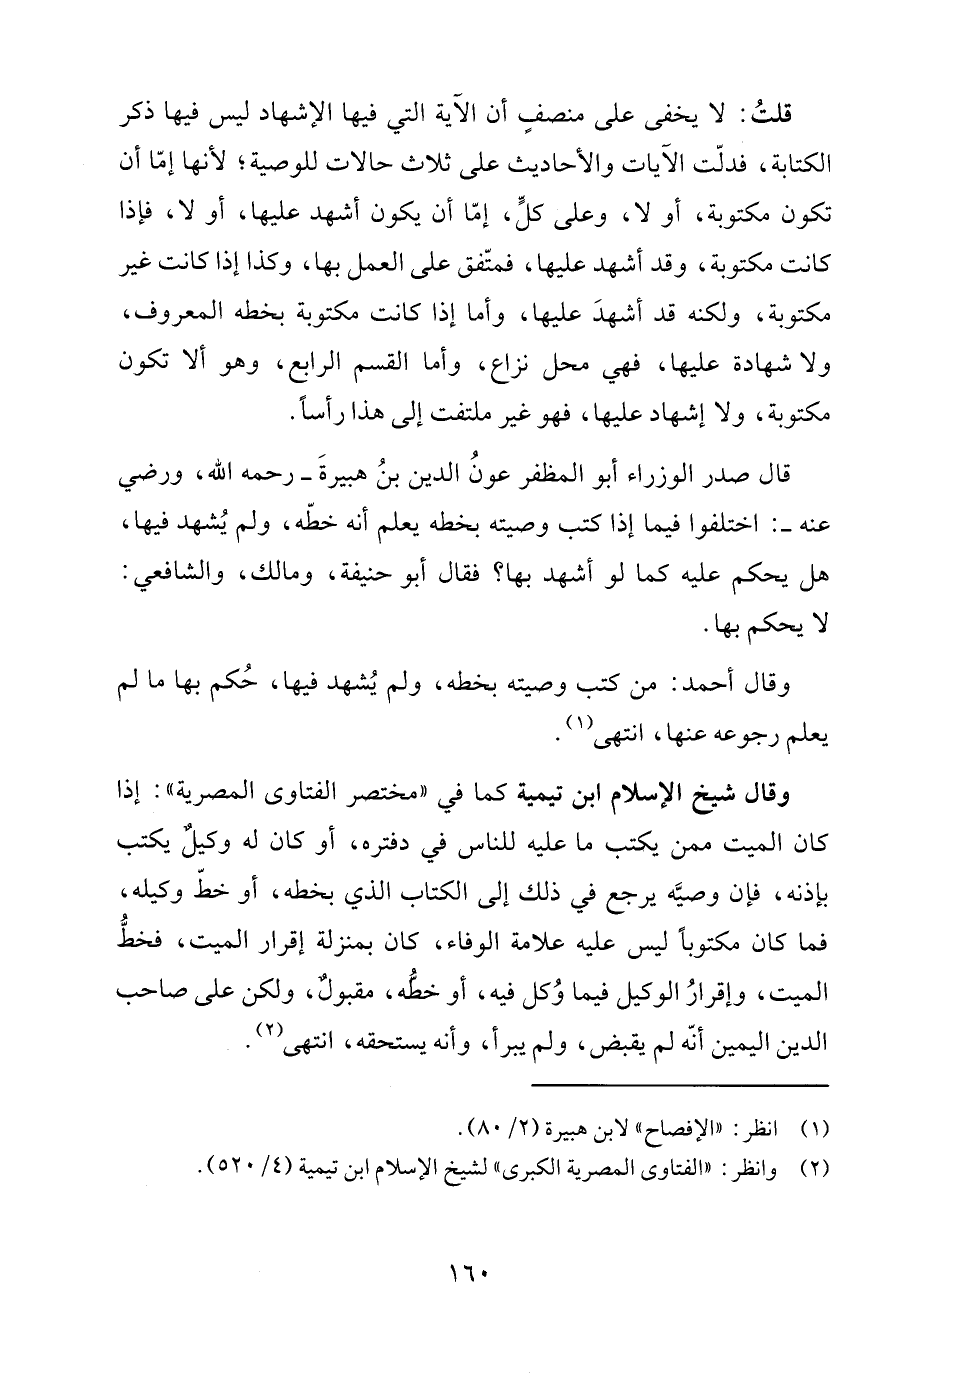 قلتُ: لا يخفى على منصفٍ أن الآية التي فيها الإشهاد ليس فيها ذكر
الكتابة، فدلّت الآيات والأحاديث على ثلاث حالات للوصية؛ لأنها إمّا أن
تكون مكتوبة، أو لا، وعلى كلٍّ، إمّا أن يكون أشهد عليها، أو لا، فإذا
كانت مكتوبة، وقد أشهد عليها، فمتّفق على العمل بها، وكذا إذا كانت غير
مكتوبة، ولكنه قد أشهدَ عليها، وأما إذا كانت مكتوبة بخطه المعروف،
ولا شهادة عليها، فهي محل نزاع، وأما القسم الرابع، وهو ألا تكون
مكتوبة، ولا إشهاد عليها، فهو غير ملتفت إلى هذا رأساً.
قال صدر الوزراء أبو المظفر عونُ الدين بنُ هبيرةَ ـ رحمه الله، ورضي
عنه ـ: اختلفوا فيما إذا كتب وصيته بخطه يعلم أنه خطّه، ولم يُشهد فيها،
هل يحكم عليه كما لو أشهد بها؟ فقال أبو حنيفة، ومالك، والشافعي:
لا يحكم بها.
وقال أحمد: من كتب وصيته بخطه، ولم يُشهد فيها، حُكم بها ما لم
يعلم رجوعه عنها، انتهى(١).
وقال شيخ الإسلام ابن تيمية كما في «مختصر الفتاوى المصرية»: إذا
كان الميت ممن يكتب ما عليه للناس في دفتره، أو كان له وكيلٌ يكتب
بإذنه، فإن وصيَّه يرجع في ذلك إلى الكتاب الذي بخطه، أو خطّ وكيله،
فما كان مكتوباً ليس عليه علامة الوفاء، كان بمنزلة إقرار الميت، فخطُّ
الميت، وإقرارُ الوكيل فيما وُكل فيه، أو خطُّه، مقبولٌ، ولكن على صاحب
الدين اليمين أنّه لم يقبض، ولم يبرأ، وأنه يستحقه، انتهى(٢).
(١) انظر: «الإفصاح» لابن هبيرة (٢/ ٨٠).
(٢) وانظر: «الفتاوى المصرية الكبرى» لشيخ الإسلام ابن تيمية (٤/ ٥٢٠).
١٦٠